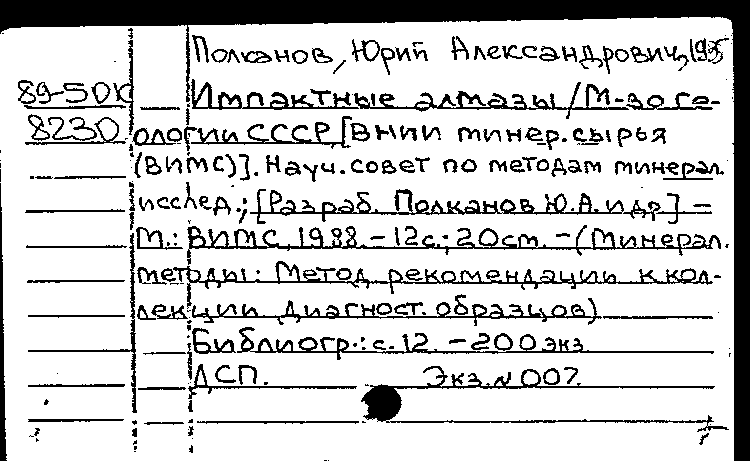 Полканов, Юрий Александрович, 1935
89-50К Импактные алмазы / М-во ге-
8230 ологии СССР, [ВНИИ минер. сырья
(ВИМС)]. Науч. совет по методам минерал.
исслед.; [Разраб. Полканов Ю.А. и др.] –
М.: ВИМС, 1988. – 12 с.; 20 см. – (Минерал.
методы: Метод. рекомендации к кол-
лекции диагност. образцов)
Библиогр.: с. 12. – 200 экз.
ДСП. Экз. № 007.